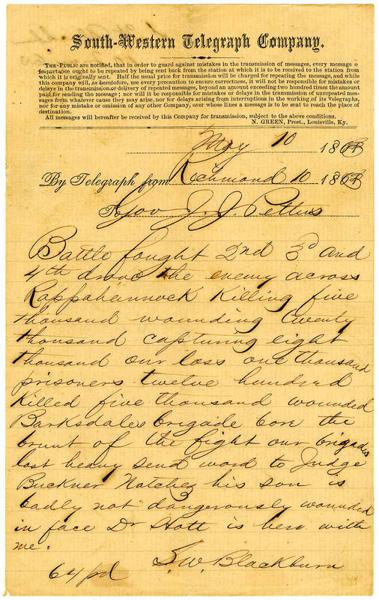 South-Western Telegraph Company.
THE PUBLIC are notified, that in order to guard against mistakes in the transmission of messages, every message of
importance ought to be repeated by being sent back from the station at which it is to be received to the station from
which it is originally sent. Half the usual price for transmission will be charged for repeating the message, and while
this company will, as heretofore, use every precaution to ensure correctness, it will not be responsible for mistakes or
delays in the transmission or delivery of repeated messages, beyond an amount exceeding two hundred times the amount
paid for sending the message; nor will it be responsible for mistakes or delays in the transmission of unrepeated mes-
sages from whatever cause they may arise, nor for delays arising from interruptions in the working of its Telegraphs,
nor for any mistake or omission of any other Company, over whose lines a message is to be sent to reach the place of
destination.
All messages will hereafter be received by this Company for transmission, subject to the above conditions.
N. GREEN, Prest., Louisville, Ky.
May 10 1863
By Telegraph from Richmond 10 1863
To Gov J. J. Pettus
Battle fought 2nd 3d and
4th drove the enemy across
Rappahannock Killing five
thousand wounding twenty
thousand capturing eight
thousand our loss one thousand
prisoners twelve hundred
Killed five thousand wounded
Barksdales brigade bore the
brunt of the fight our brigades
lost heavy send word to Judge
Buckner Natchez his son is
badly not dangerously wounded
in face Dr Hott is here with
me.
S. W. Blackburn
64 pd